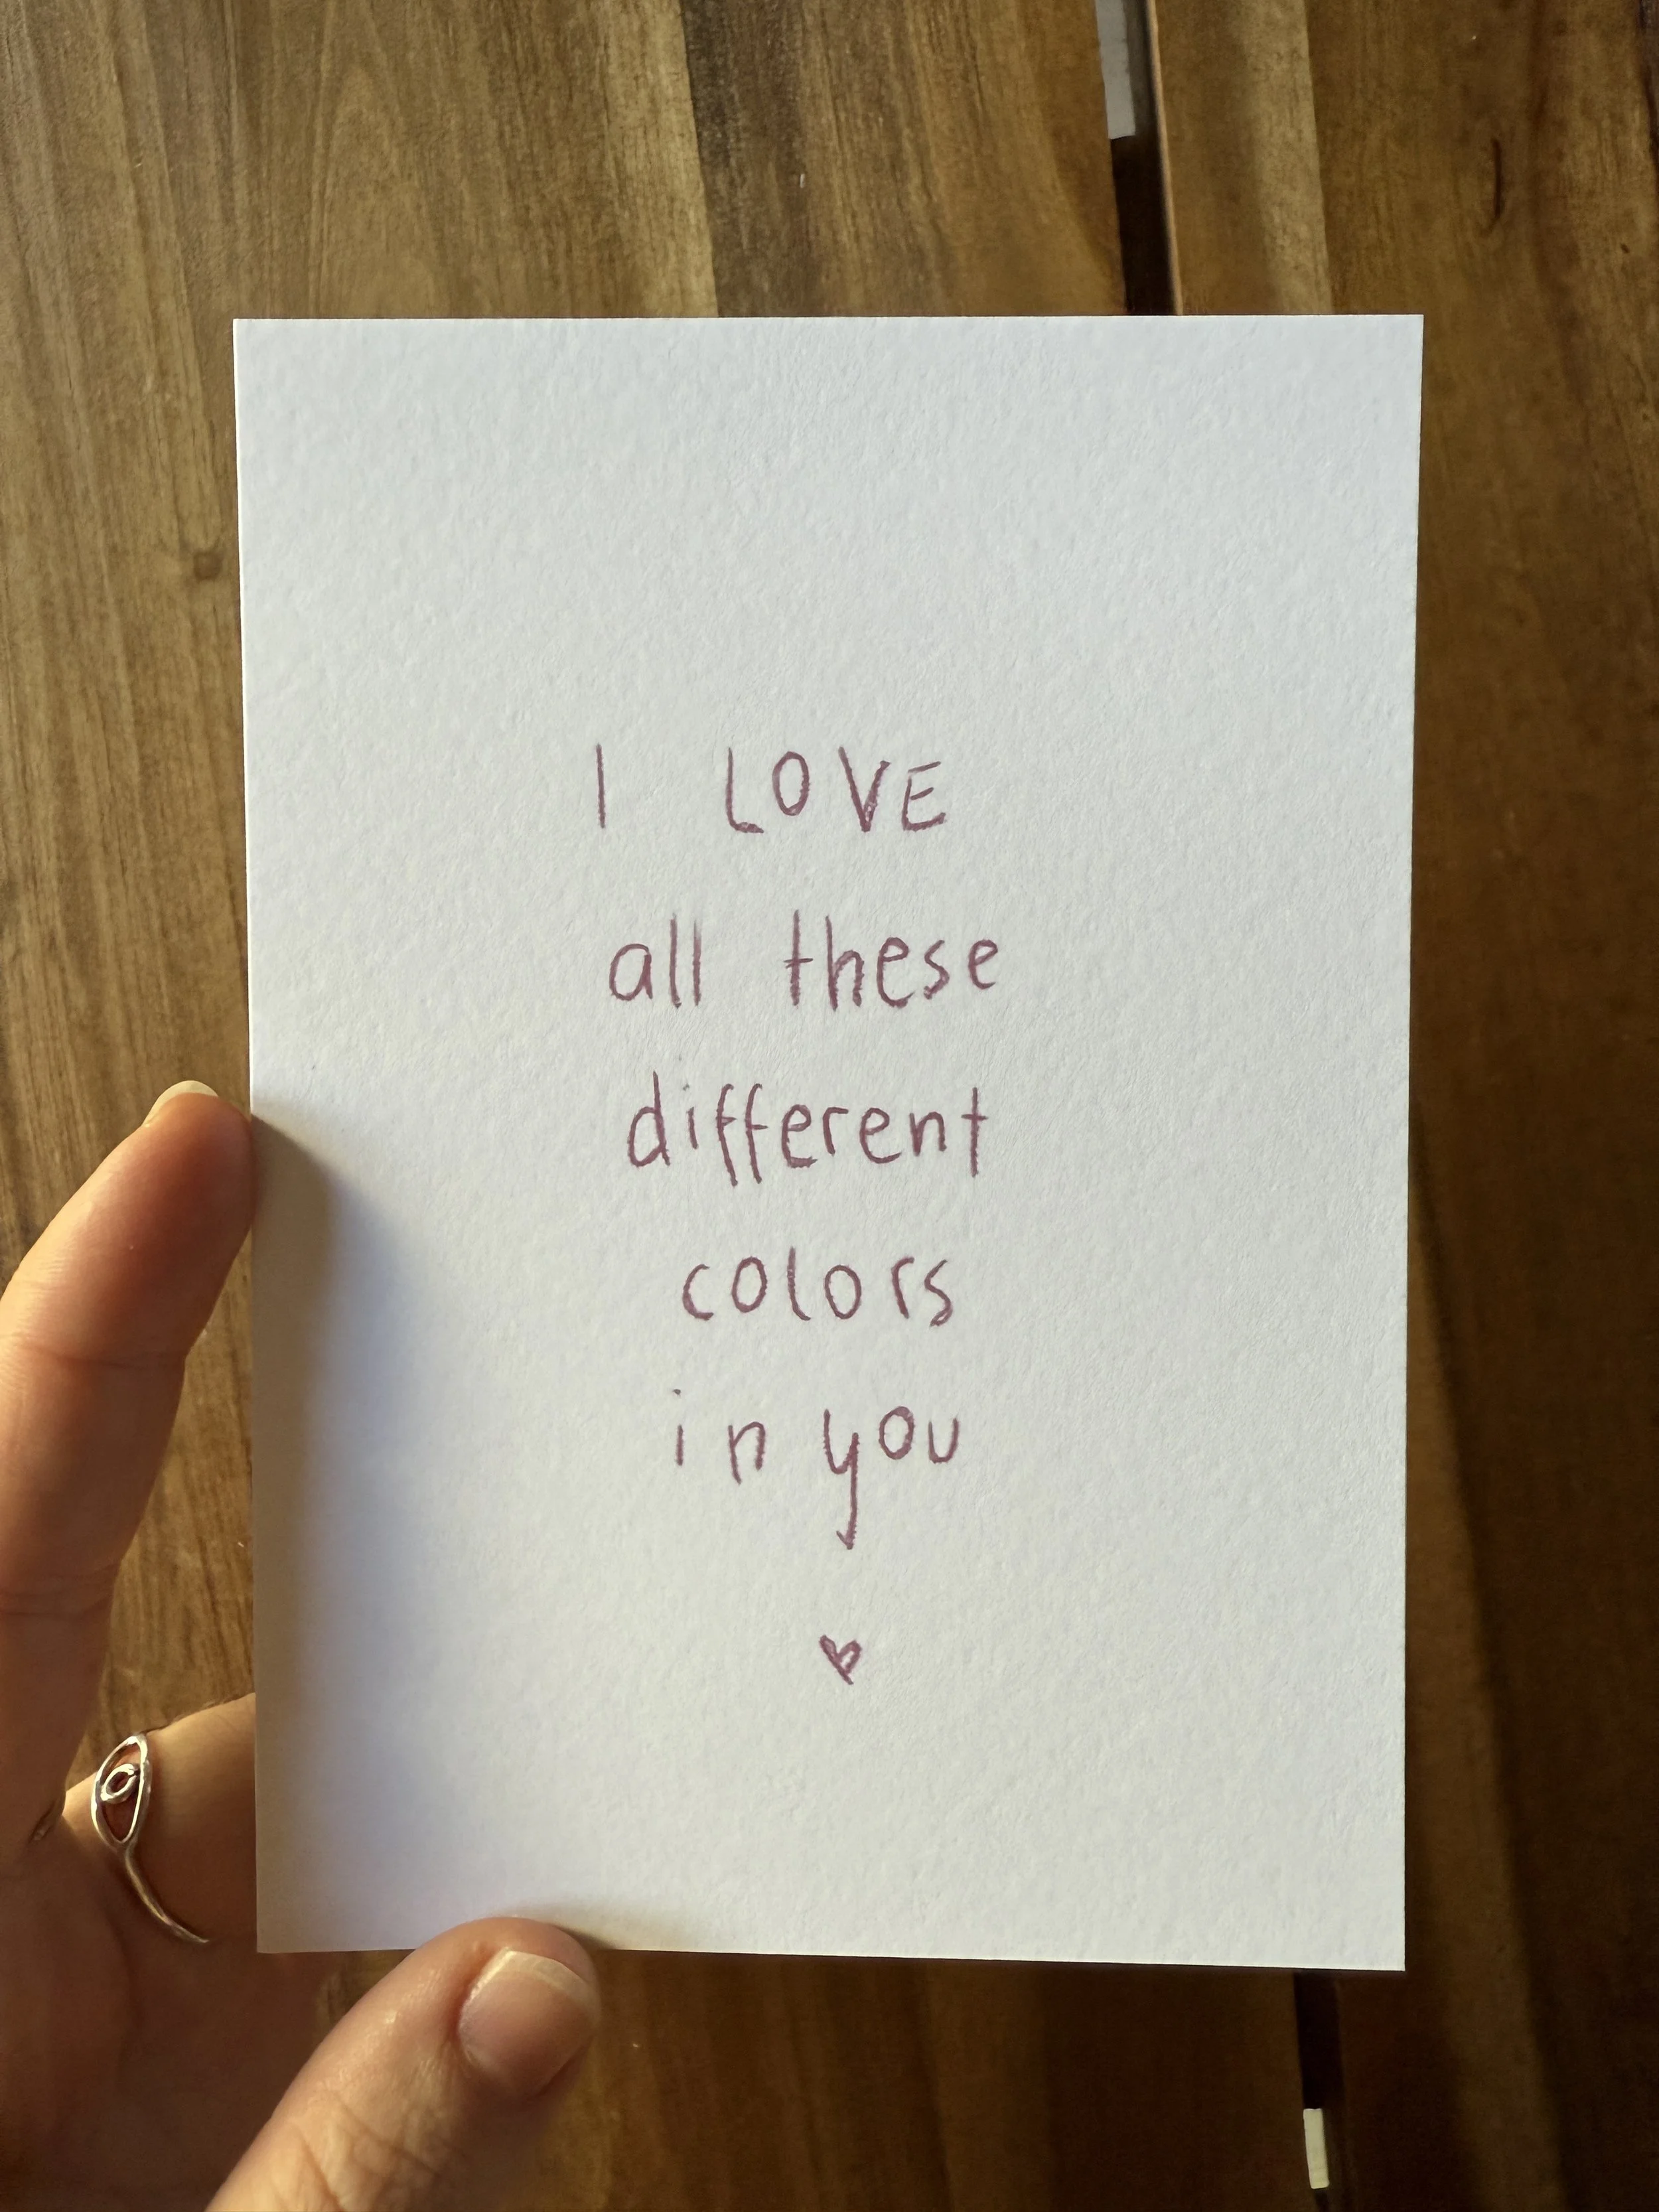 I LOVE
all these
different
colors
in you
♥